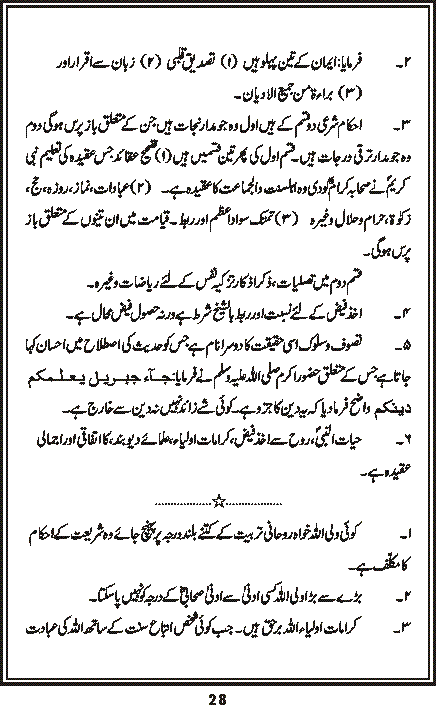 ۲۔ فرمایا: ایمان کے تین پہلو ہیں (۱) تصدیق قلبی (۲) زبان سے اقرار اور
(۳) براءۃ من جمیع الادیان۔
۳۔ احکام شرعی دو قسم کے ہیں اول وہ جو مدار نجات ہیں جن کے متعلق باز پرس ہوگی دوم
وہ جو مدار ترقی درجات ہیں۔ قسم اول کی پھر تین قسمیں ہیں (۱) تصحیح عقائد جس عقیدہ کی تعلیم نبی
کریمؐ نے صحابہ کرامؓ کو دی وہ اہلسنت والجماعت کا عقیدہ ہے۔ (۲) عبادات، نماز، روزہ، حج،
زکوٰۃ، حرام و حلال وغیرہ (۳) تمسک سواد اعظم اور ربط۔ قیامت میں ان تینوں کے متعلق باز
پرس ہوگی۔
قسم دوم میں نفلیات، ذکر اذکار تزکیہ نفس کے لئے ریاضات وغیرہ۔
۴۔ اخذ فیض کے لئے نسبت اور ربط بالشیخ شرط ہے ورنہ حصول فیض محال ہے۔
۵۔ تصوف و سلوک اسی حقیقت کا دوسرا نام ہے جس کو حدیث کی اصطلاح میں احسان کہا
جاتا ہے جس کے متعلق حضور اکرم صلی اللہ علیہ وسلم نے فرمایا: جآء جبریل یعلمکم
دینکم واضح فرما دیا کہ یہ دین کا جزو ہے۔ کوئی شے زائد نہیں نہ دین سے خارج ہے۔
۶۔ حیات النبیؐ، روح سے اخذ فیض، کرامات اولیاء، علمائے دیوبند کا اتفاقی اور اجماعی
عقیدہ ہے۔
.................☆.................
۱۔ کوئی ولی اللہ خواہ روحانی تربیت کے کتنے بلند درجہ پر پہنچ جائے وہ شریعت کے احکام
کا مکلّف ہے۔
۲۔ بڑے سے بڑا ولی اللہ کسی ادنیٰ سے ادنیٰ صحابیؓ کے درجہ کو نہیں پا سکتا۔
۳۔ کرامات اولیاء اللہ برحق ہیں۔ جب کوئی شخص اتباع سنت کے ساتھ اللہ کی عبادت
28